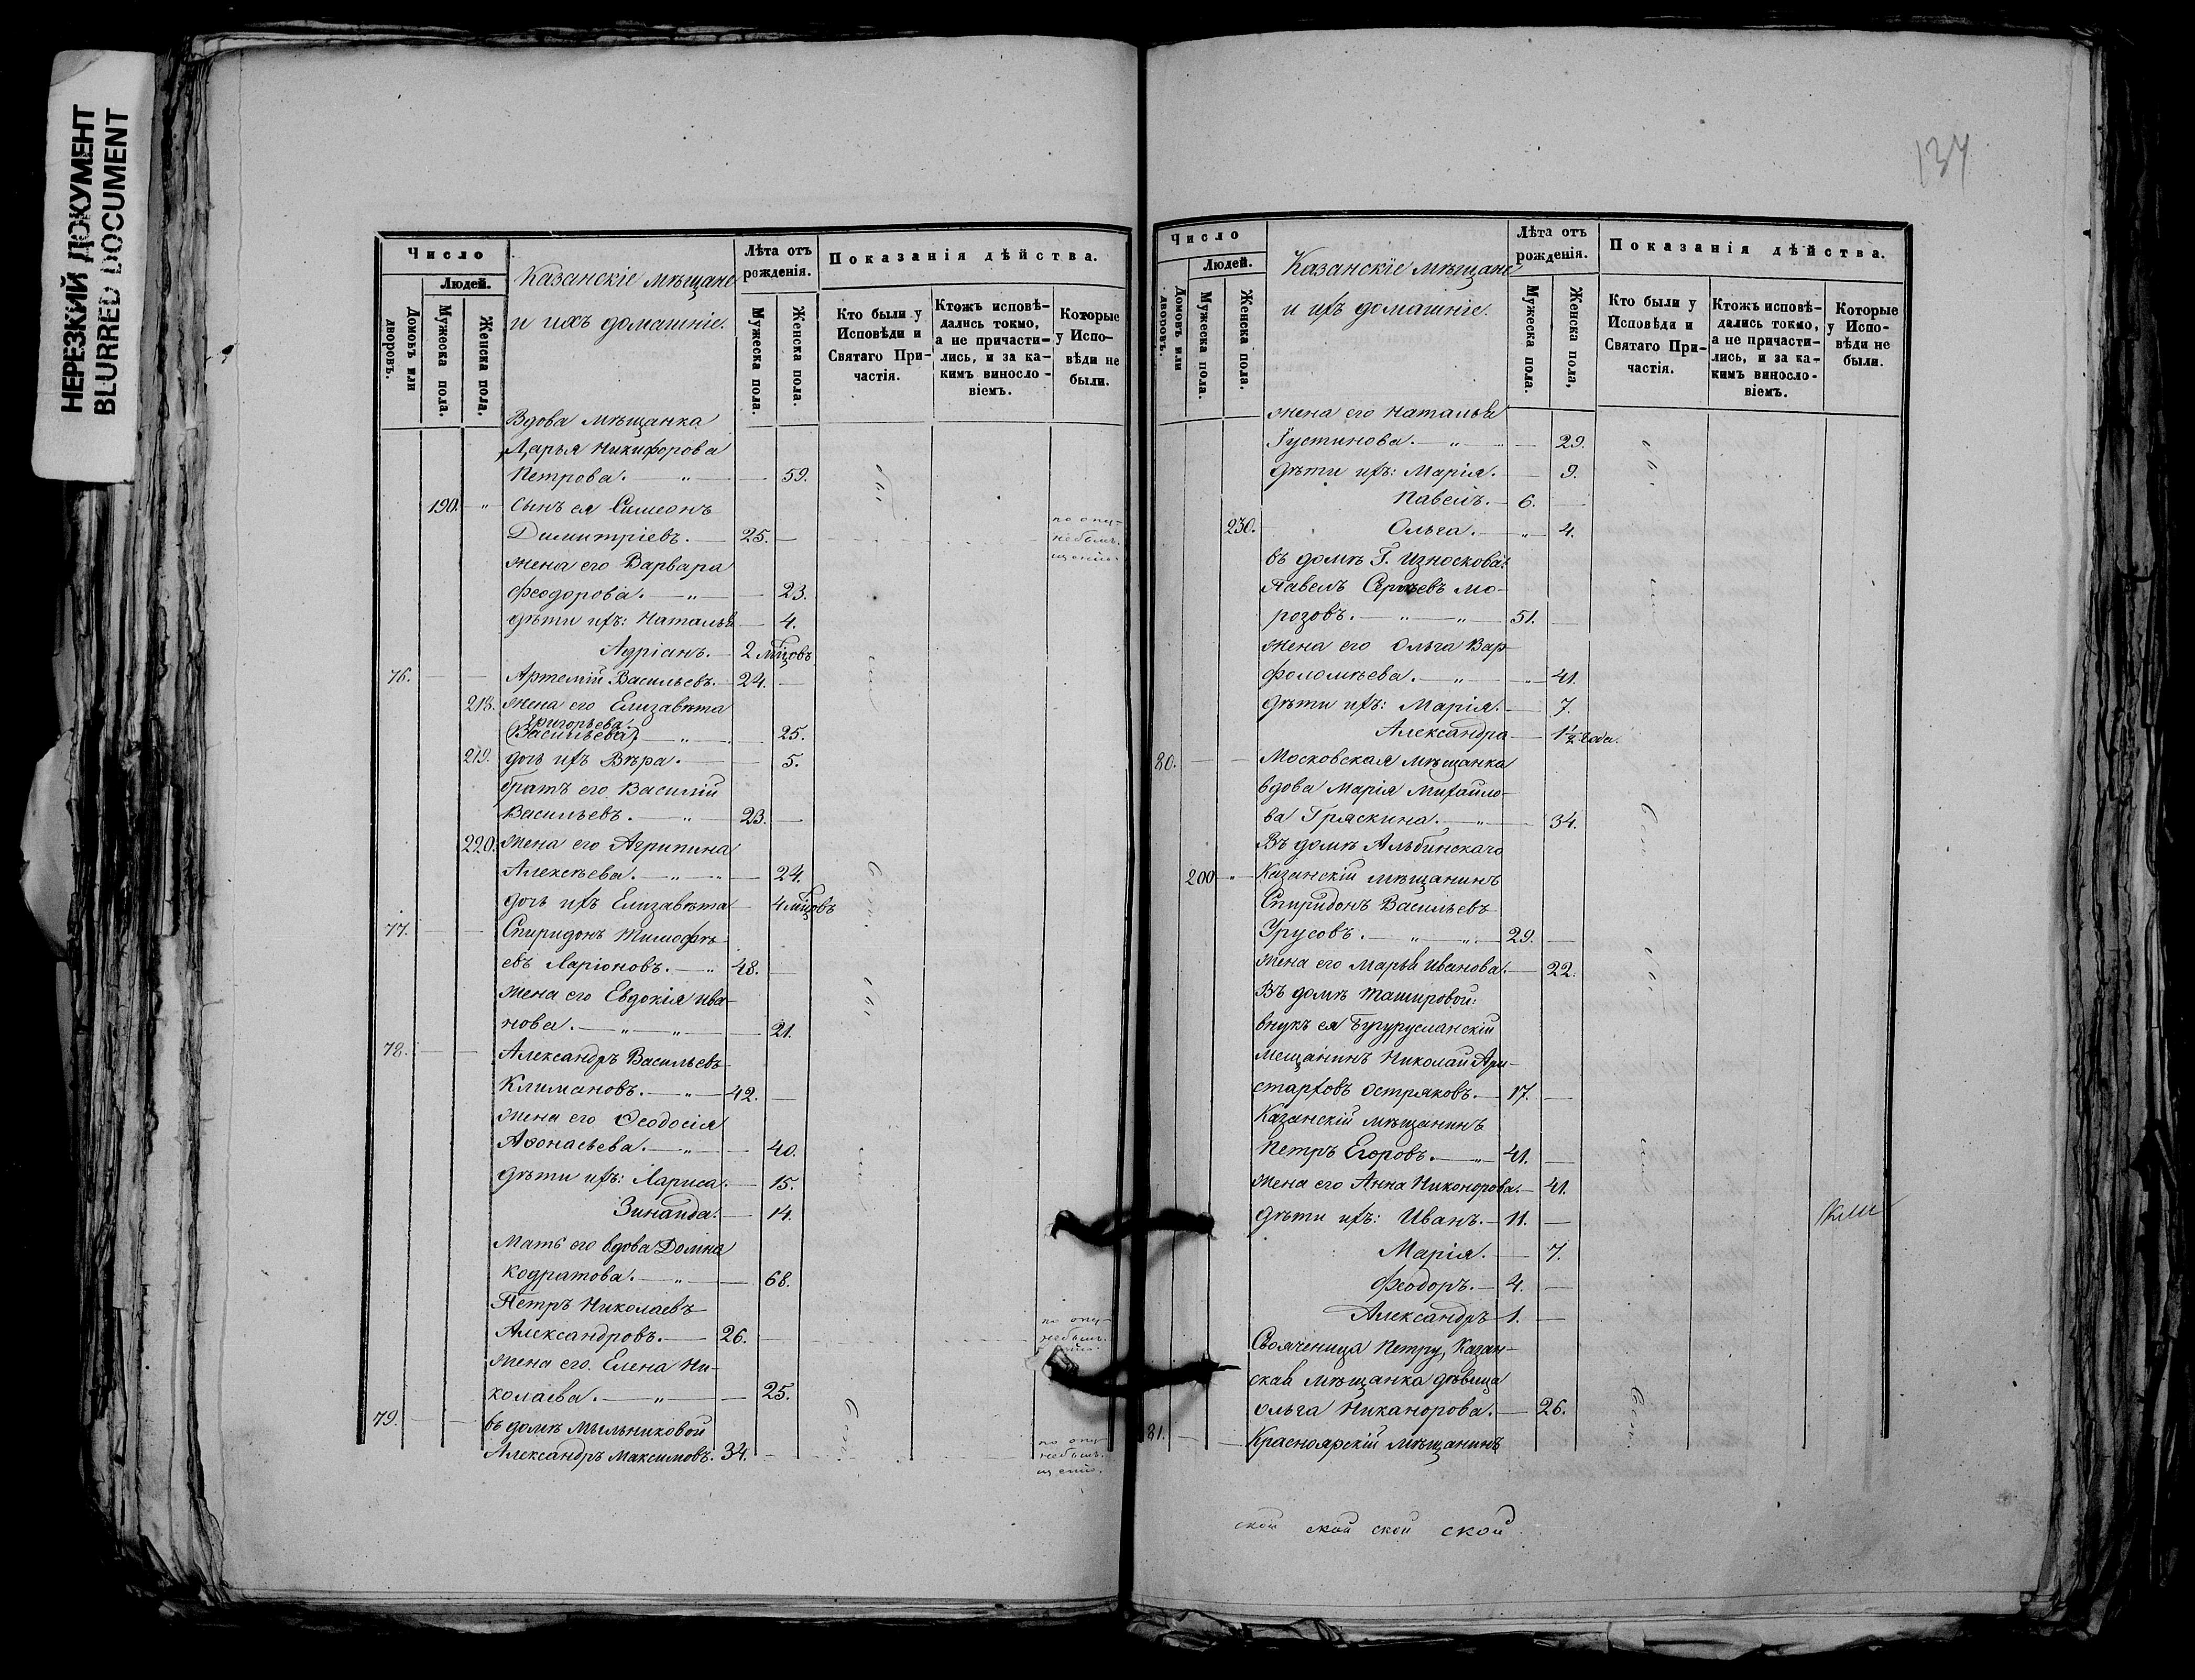 НЕРЕЗКИЙ ДОКУМЕНТ
BLURRED DOCUMENT
Число
Людей.
Домовъ или дворовъ.
Мужеска пола.
Женска пола.
Казанскіе мѣщане
и ихъ домашніе.
Лѣта отъ рожденія.
Мужеска пола.
Женска пола.
Показанія дѣйства.
Кто были у Исповѣди и Святаго При-частія.
Ктожъ исповѣ-дались токмо, а не причасти-лись, и за ка-кимъ винослo-віемъ.
Которые у Испо-вѣди не были.
Вдова мѣщанка
Дарья Никифорова
Петрова. — „ — 59.
190. „ сынъ ея Симеонъ
Димитріевъ. — 25. — по опу-щенію не былъ.
жена его Варвара
Феодорова. — „ — 23.
дѣти ихъ: Наталья — 4.
Адріанъ. — 2 мцовъ
76. — — Артемій Васильевъ. — 24. —
218. жена его Елизавета
Григорьева.
(Васильева). — „ — 25.
219. дочь ихъ Вѣра. — 5.
братъ его Василій
Васильевъ. — „ — 23. —
220. жена его Агрипина
Алексѣева. — „ — „ — 24.
дочь ихъ Елизавета — 4 мцовъ
77. — — Спиридонъ Тимофѣ-
евъ Ларіоновъ. — „ 48. —
жена его Евдокія Ива-
нова. — „ — „ — 21.
78. — — Александръ Васильевъ
Климановъ. — „ — 42. —
жена его Ѳеодосія
Аѳонасьева. — „ — 40.
дѣти ихъ: Лариса. — 15.
Зинаида. — 14.
Мать его вдова Домна
Кодратова. — „ — 68.
Петръ Николаевъ
Александровъ. — 26. — по опу-щенію не былъ.
жена его Елена Ни-
колаева. — „ — 25.
79. — — въ домѣ Мыльниковой
Александръ Максимовъ. 34. — по опу-щенію не былъ.
134
Число
Людей.
Домовъ или дворовъ.
Мужеска пола.
Женска пола.
Казанскіе мѣщане
и ихъ домашніе.
Лѣта отъ рожденія.
Мужеска пола.
Женска пола,
Показанія дѣйства.
Кто были у Исповѣди и Святаго При-частія.
Ктожъ исповѣ-дались токмо, а не причасти-лись, и за ка-кимъ винослo-віемъ.
Которые у Испо-вѣди не были.
жена его Наталья
Іустинова. — „ — 29.
дѣти ихъ: Марія. — 9.
Павелъ. — 6. —
230. — Ольга. — „ — 4.
въ домѣ Г. Износкова:
Павелъ Сергѣевъ Мо-
розовъ. — „ — „ — 51. —
жена его Ольга Вар-
фоломѣева. — „ — „ — 41.
дѣти ихъ: Марія. — 7.
Александра — 1½ года.
80. — — Московская мѣщанка
вдова Марія Михайло-
ва Гряскина. — „ — 34.
Въ домѣ Альбинскаго
200 „ Казанскій мѣщанинъ
Спиридонъ Васильевъ
Урусовъ. — „ — „ — 29. —
жена его Марья Иванова. — 22.
Въ домѣ Ташировой:
внукъ ея Бугурусланскій
мещанинъ Николай Ари-
старховъ Остряковъ. — 17. —
Казанскій мѣщанинъ
Петръ Егоровъ. — „ — 41. —
жена его Анна Никонорова. — 41.
дѣти ихъ: Иванъ. — 11. —
Марія. — 7.
Феодоръ. — 4. —
Александръ — 1. —
Свояченица Петру, Казан-
ская мѣщанка дѣвица
Ольга Никанорова. — 26.
81. — — Красноярскій мѣщанинъ
ской ской ской ской